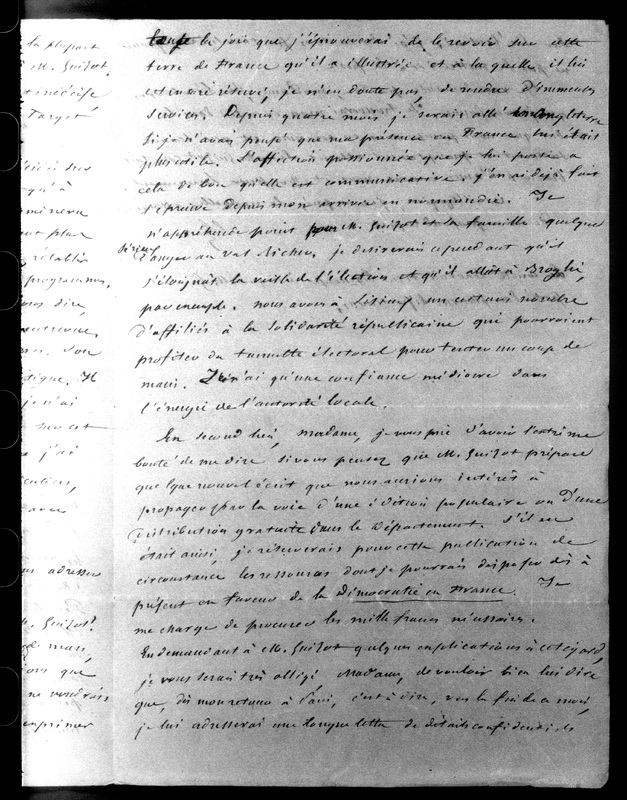 la plupart
à M. Guizot
Target
programmes,
vous dire,
tique. Il
je n'ai
sur cet
j'ai
avec
us adresser
M. Guizot?
que
ne voudrais
exprimer
toute la joie que j'éprouverai de le revoir sur cette
terre de France qu'il a illustrée et à la quelle il lui
est encore réservé, je n'en doute pas, de rendre d'immenses
services. Depuis quatre mois je serais allé en Angleterre
si je n'avais pensé que ma présence en France lui était
plus utile. L'affection passionnée que je lui porte a
cela de bon qu'elle est communicative. j'en ai déjà fait
l'épreuve depuis mon arrivée en normandie. Je
n'appréhende point pour M. Guizot et sa famille quelque
sérieux
danger au val Richer, je désirerais cependant qu'il
s'éloignât la veille de l'élection et qu'il allât à Broglie,
par exemple. nous avons à Lisieux un certain nombre
d'affiliés à la solidarité républicaine qui pourroient
profiter du tumulte électoral pour tenter un coup de
main. Je n'ai qu'une confiance médiocre dans
l'énergie de l'autorité locale.
En second lieu, Madame, je vous prie d'avoir l'extrême
bonté de me dire si vous pensez que M. Guizot prépare
quelque nouvel écrit que nous aurions intérêt à
propager par la voie d'une édition populaire ou d'une
distribution gratuite dans le Département. S'il en
était ainsi, je réserverais pour cette publication de
circonstance les ressources dont je pourrais disposer dès à
présent en faveur de la Démocratie en France. Je
me charge de procurer les mille francs nécessaires.
En demandant à M. Guizot quelques explications à cet égard,
je vous serais très obligé Madame, de vouloir bien lui dire
que, dès mon retour à Paris, c'est à dire, vers la fin de ce mois,
je lui adresserai une longue lettre de détails confidentiels